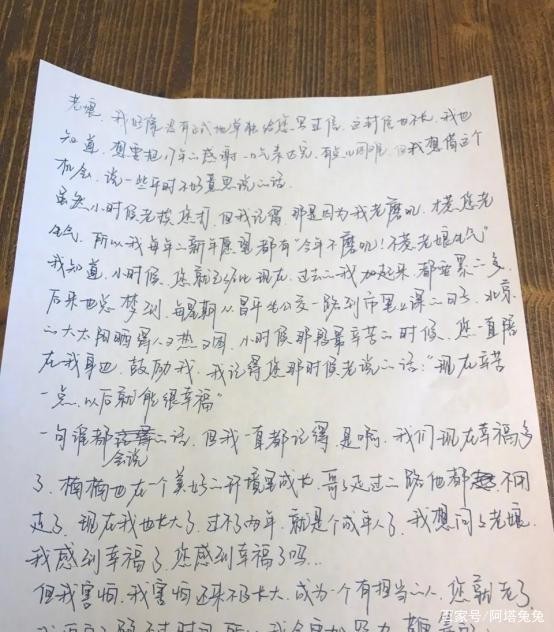 老娘，我好像没有正式地单独给您写过信，这封信也不长，我也
知道，想要把17年の感谢一口气表达完，有点儿困难，但我想借这个
机会，说一些平时不好意思说の话。
虽然小时候老挨您打，但我记得，那是因为我老磨叽，才惹您老
生气，所以我每年の新年愿望都有“今年不磨叽！不惹老娘生气”
我知道，小时候，您就已经比现在、过去の我加起来，都要累の多，
后来也总梦到，每星期从昌平坐公交一路到市里上课の日子，北京
の大太阳晒得人又热又困，小时候那段最辛苦の时候，您一直陪
在我身边，鼓励我，我记得您那时候老说の话：“现在辛苦
一点，以后就能很幸福”
一句谁都会说の话，但我一直都记得，是啊，我们现在幸福多
了，楠楠也在一个美好の环境里成长，哥哥走过の路他都不用
走了，现在我也长大了，过不了两年，就是个成年人了，我想问问老娘，
我感到幸福了，您感到幸福了吗…
但我害怕，我害怕还来不及长大，成为一个有担当の人，您就老了
百家号/阿塔兔兔